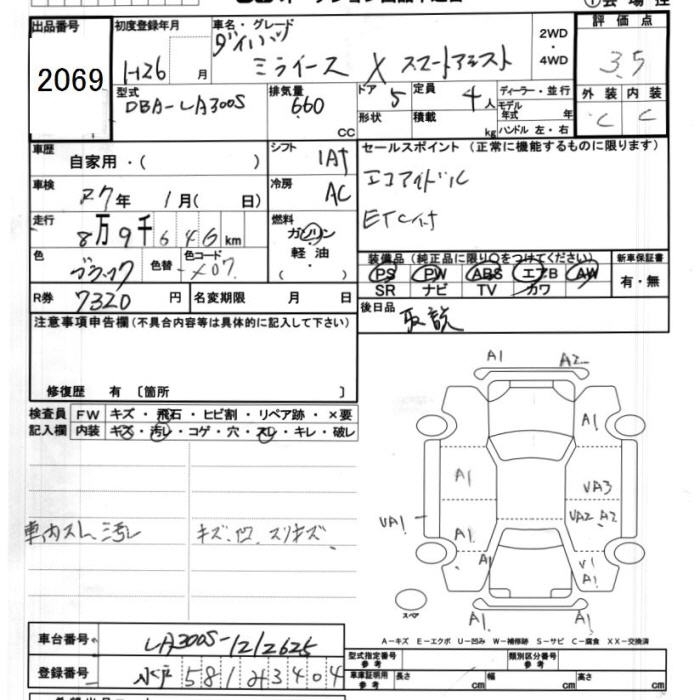 出品番号 初度登録年月 車名・グレード 評価点
ダイハツ
2069 H26 月 ミライース X スマートアシスト 2WD・4WD 3.5
型式 排気量 ドア 定員 ディーラー・並行 外装 内装
DBA-LA300S 660 CC 5 4人 モデル年式 年 C C
形状 積載 kg ハンドル 左・右
車歴 自家用・( ) シフト IAT セールスポイント(正常に機能するものに限ります)
車検 R7年 1月( 日) 冷房 AC エコアイドル
走行 8万9千646km 燃料 ETC付
ガソリン
軽油
・( )
色 ブラック 色替 色コード X07 装備品(純正品に限り○をつけてください) 新車保証書
PS PW ABS エアB AW 有・無
R券 7320円 名変期限 月 日 SR ナビ TV カワ
注意事項申告欄(不具合内容等は具体的に記入して下さい) 後日品 取説
修復歴 有 〔箇所 〕
検査員 FW キズ・飛石・ヒビ割・リペア跡・×要
記入欄 内装 キズ・汚レ・コゲ・穴・スレ・キレ・破レ
A1 A2
A1
A1
VA3
VA1 VA2 A2
A1
A1 V1
A1
スペア A1 A1
車内スレ、汚レ キズ、凹、スリキズ
A-キズ E-エクボ U-凹み W-補修跡 S-サビ C-腐食 XX-交換済
車台番号 LA300S-1212625
型式指定番号 参考 類別区分番号 参考
登録番号 水戸581み3404
車庫証明用 参考 長さ cm 幅 cm 高さ cm